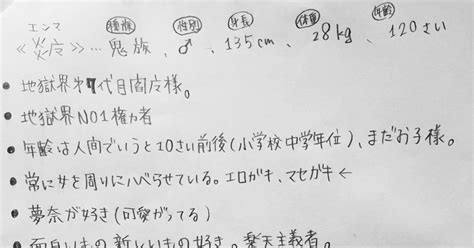 エンマ 種族 性別 身長 体重 年齢
《炎摩》…鬼族、♂、135cm、28kg、120さい
•地獄界第7代目閻魔様。
•地獄界NO1権力者
•年齢は人間でいうと10さい前後(小学校中学年位)、まだお子様。
•常に女を周りにハベらせている。エロガキ、マセガキ←
夢奈が好き(可愛がってる)
面白いもの新しいもの好き。楽天主義者。